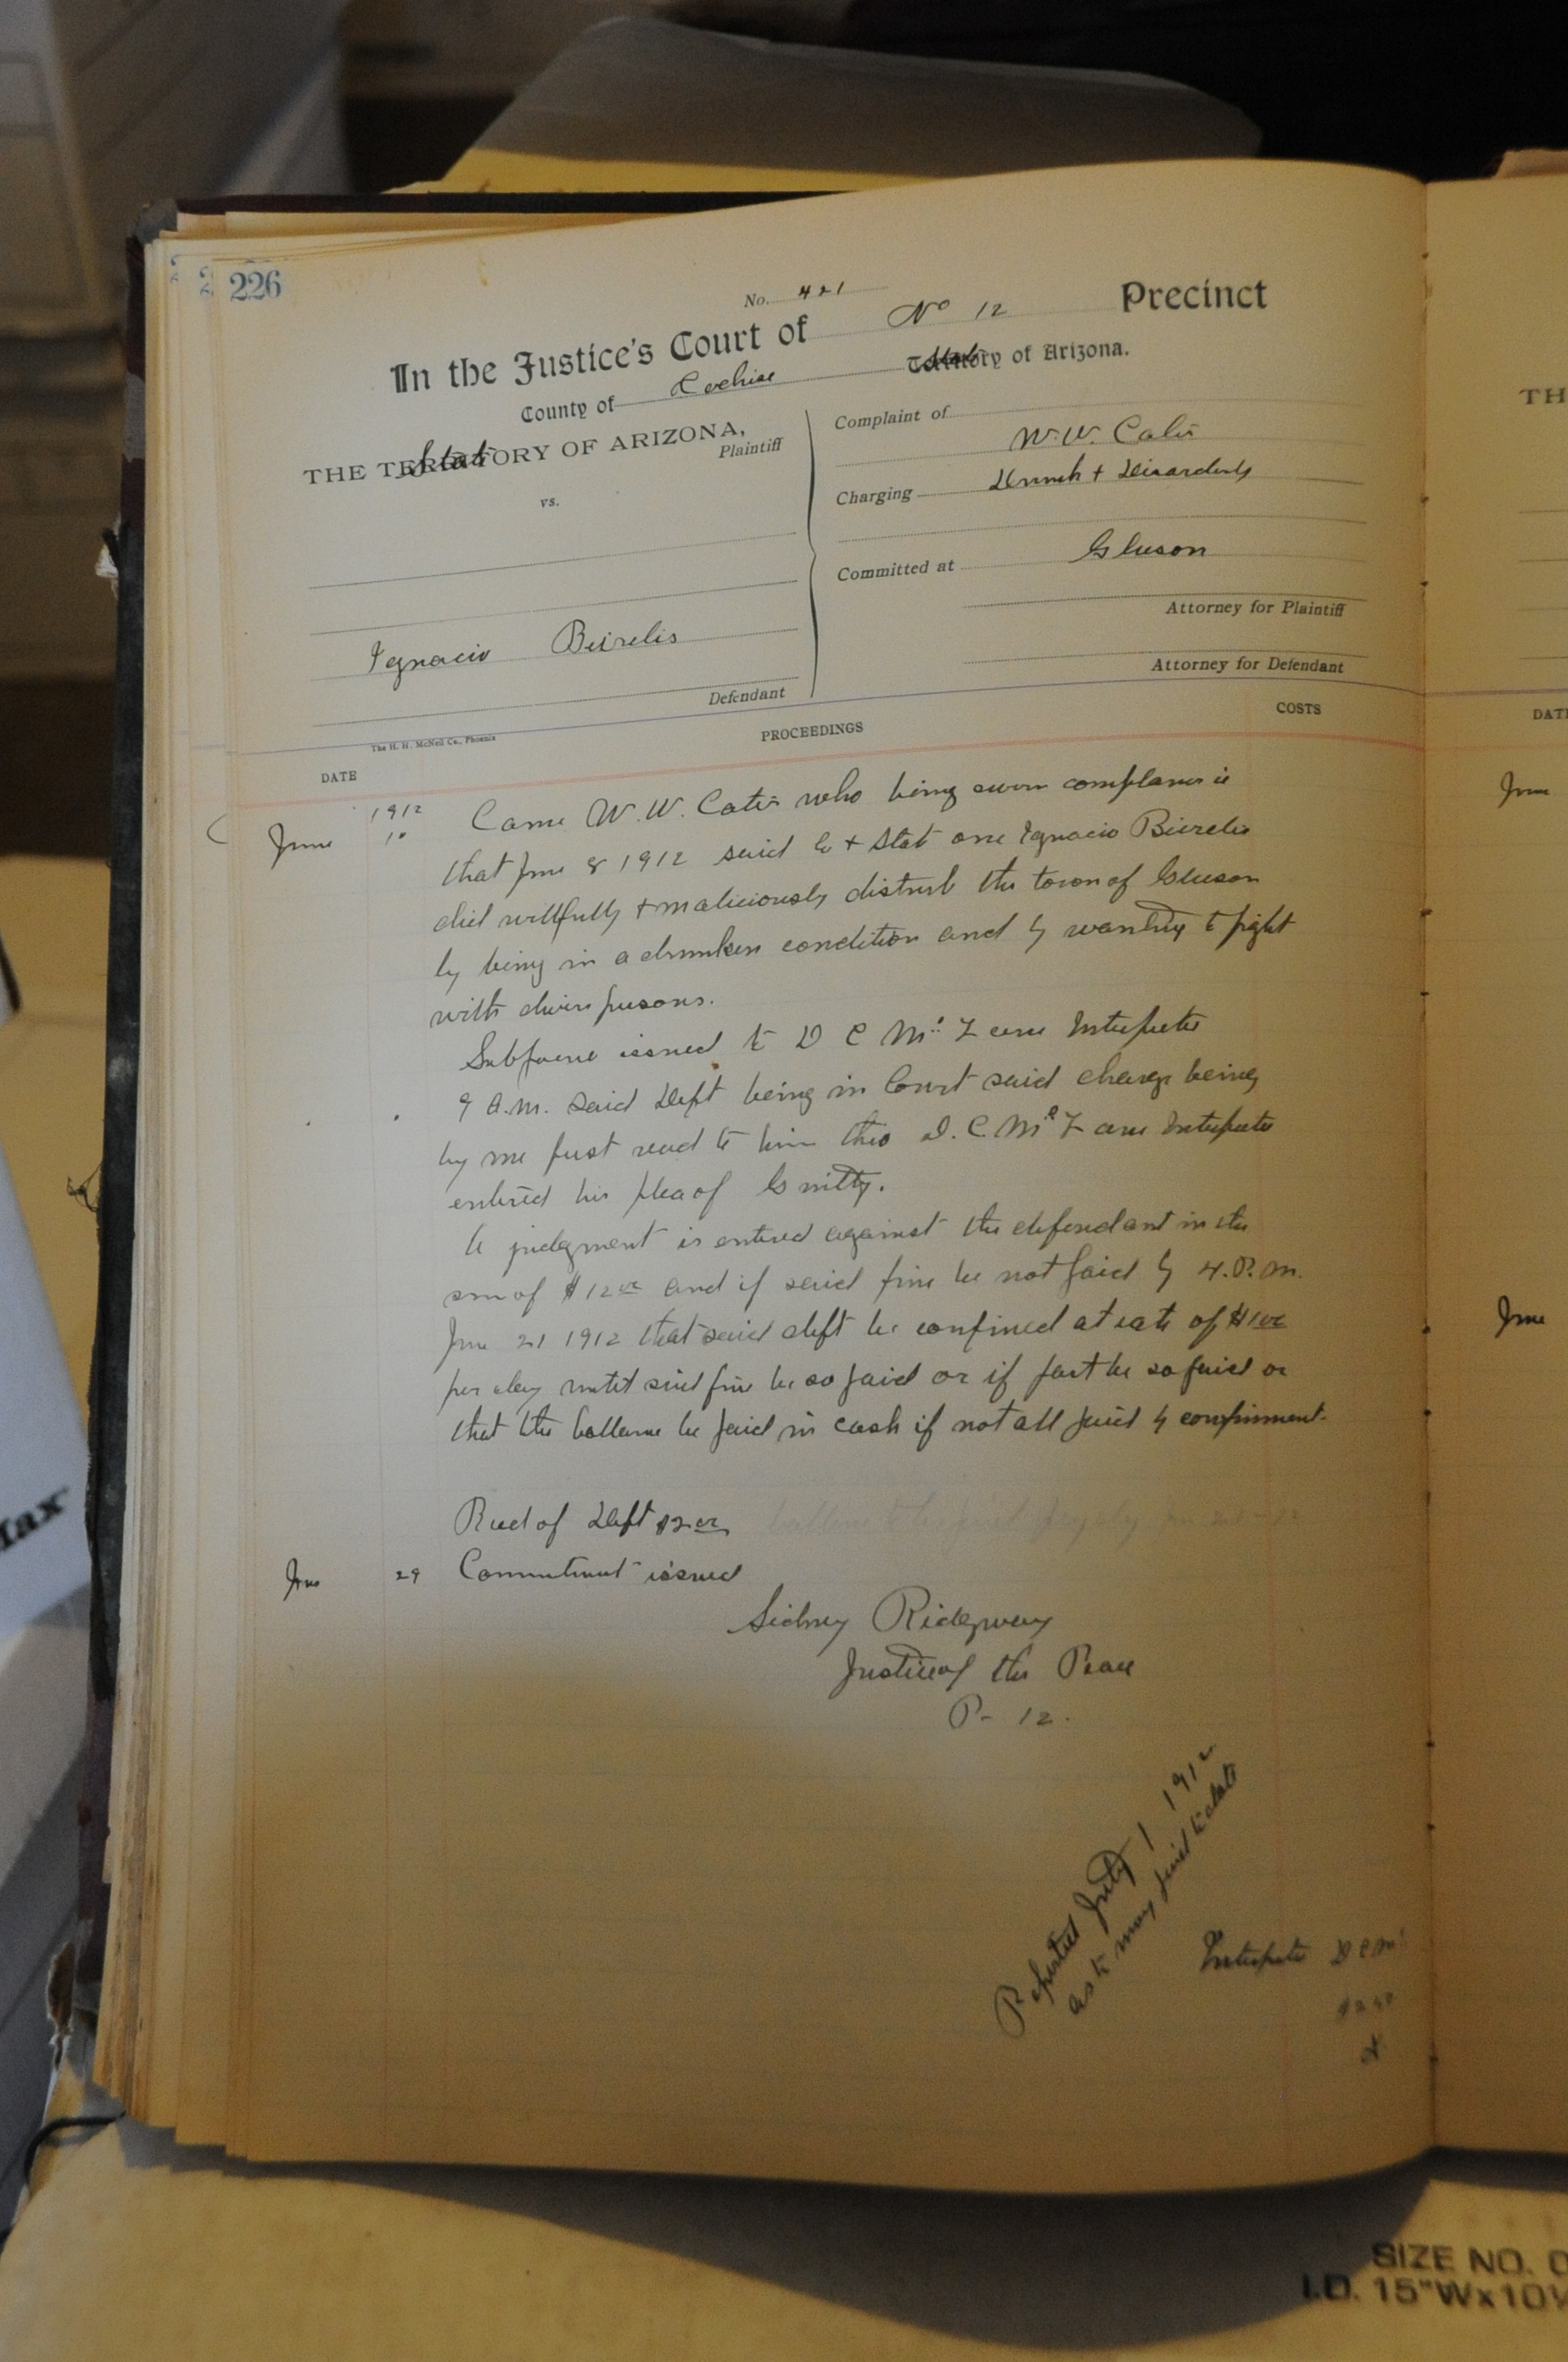 226
No. 421
In the Justice's Court of No 12 Precinct
County of Cochise State of Arizona.
THE State OF ARIZONA,
Plaintiff
vs.
Ignacio Beirelis
Defendant
Complaint of
W. W. Cates
Charging Drunk + Disorderly
Committed at Gleeson
Attorney for Plaintiff
Attorney for Defendant
The H. H. McNeil Co., Phoenix
DATE PROCEEDINGS COSTS
1912
June 10 Came W. W. Cates who being sworn complains
that June 8 1912 said Co + State one Ignacio Bierelis
did willfully + maliciously disturb the town of Gleeson
by being in a drunken condition and by wanting to fight
with divers persons.
Subpoena issued to D C Mc Interpreter
9 A.M. said Deft being in Court said charge being
by me first read to him thro D. C. Mc Interpreter
entered his plea of Guilty.
A judgment is entered against the defendant in the
sum of $12 00 and if said fine be not paid by 4. P.M.
June 21 1912 that said deft be confined at rate of $1 00
per day until said fine be so paid or if part be so paid or
that the ballance be paid in cash if not all paid by confinment.
Recd of Deft $2 00
June 29 Commitment issued
Sidney Ridgway
Justice of the Peace
P- 12.
Reported July 1 1912
as to money paid to date
Interpreter D C Mc
$2.50
TH
DATE
June
June
Max
SIZE NO. 0
I.D. 15"Wx10